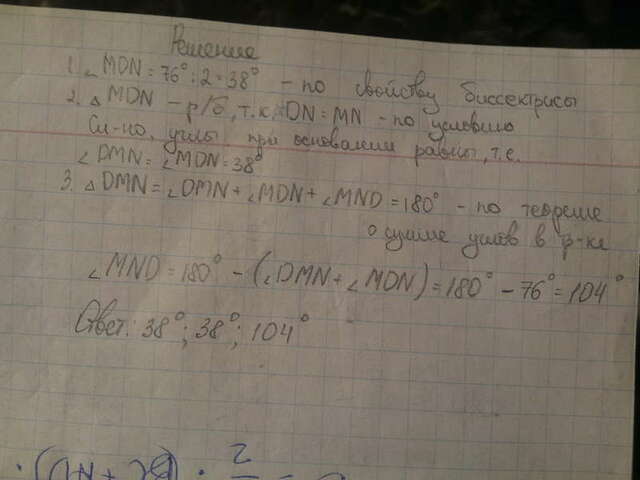 Решение
1. ∠MDN = 76° : 2 = 38° - по свойству биссектрисы
2. △ MDN - р/б, т.к. DN = MN - по условию
Сл-но, углы при основании равны, т.е.
∠DMN = ∠MDN = 38°
3. △ DMN = ∠DMN + ∠MDN + ∠MND = 180° - по теореме
о сумме углов в тр-ке
∠MND = 180° - (∠DMN + ∠MDN) = 180° - 76° = 104°
Ответ: 38°; 38°; 104°